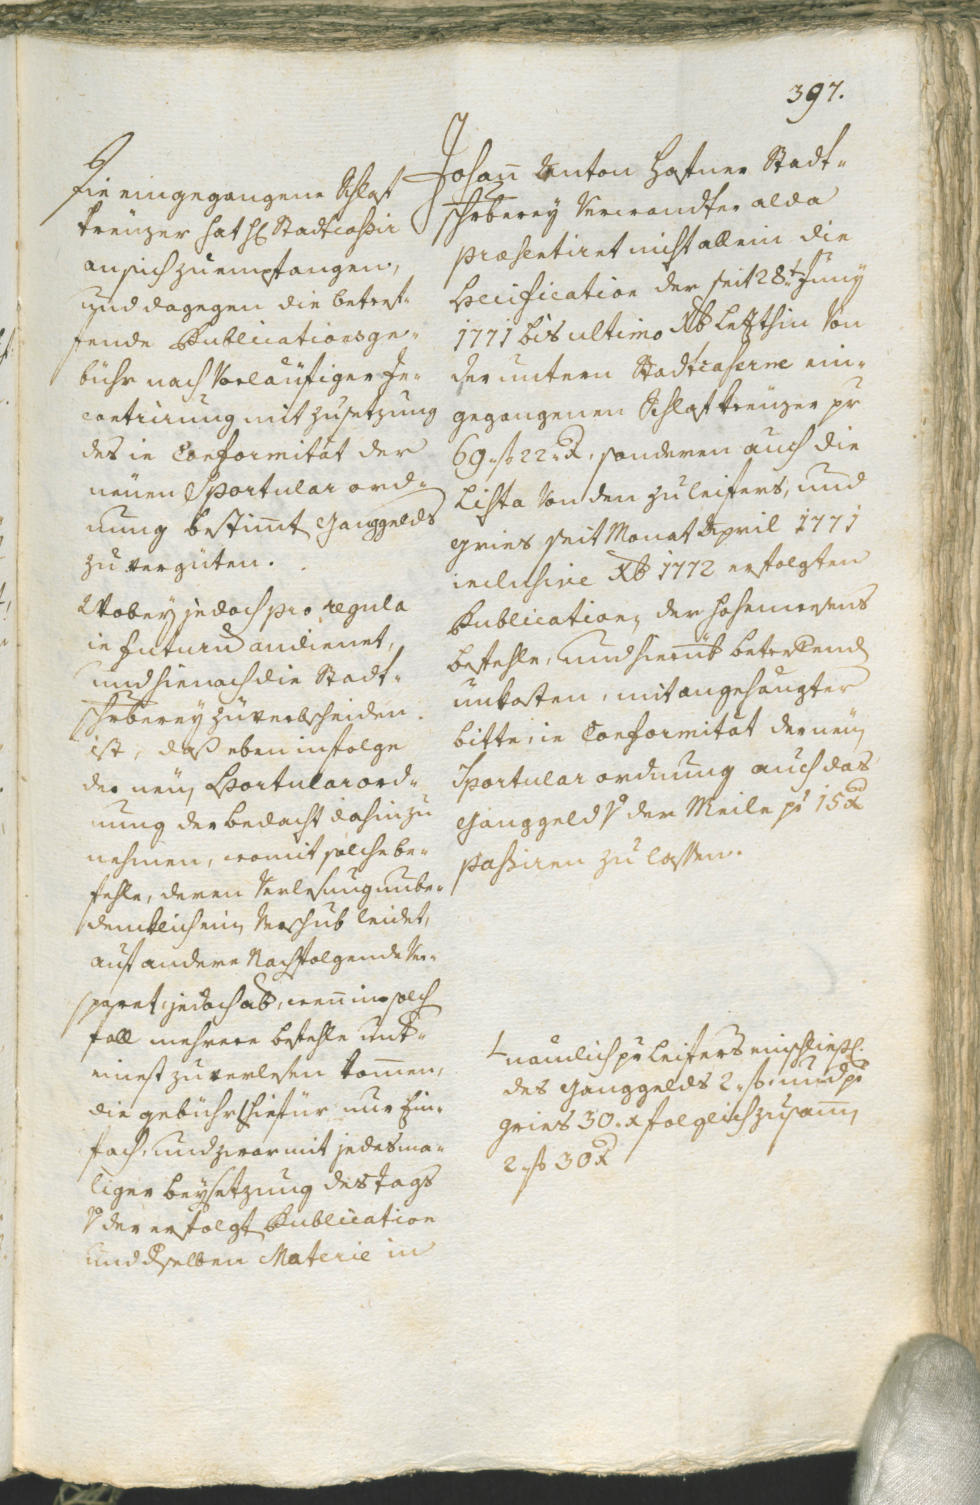 397.
Die eingegangene Schlaf
kreuzer hat H: Stadtcassir
an sich zu empfangen,
und dagegen die betref-
fende Publicationsge-
bühr nach vorläufiger
mit zusetzung
des in Conformität der
neuen Sportular ord-
nung bestimt Ganggelds
zu vergüten.
Wobey jedoch pro regula
in futurum andienet,
und hienach die Stadt-
schrberey zu verbscheiden
ist, daß eben infolge
der neuen Sportularord-
nung der bedacht dahin zu
nehmen, womit solche be-
fehle, deren Verlesung unbe-
dencklich ein Verschub leidet,
auf andere Nachfolgende ver-
sparet, jedoch ab, wenn in solch
fall mehrere befehle unt-
einest zu verlesen kommen,
die gebühr hiefür nur Ein-
fach, und zwar mit jedesma-
liger beysetzung des tags
der erfolgt Publication
und dselben Materie in
Johann Anton Hafner Stadt-
schrberey Verwandter alda
præsentiret nicht allein die
Specification der seit 28.t Juny
1771 bis ultimo Xb letzthin von
der untern Stadtcaserne ein-
gegangenen Schlafkreuzer pr
69 f 22 x, sonderen auch die
Lista von den zu leifers, und
gries seit Monat April 1771
inclusive Xb 1772 erfolgten
Publicationen der hohenwesens
befehle, und hierunt betreffend
unkosten, mit angehängter
bitte, in Conformität der neuen
Sportular ordnung auch das
Ganggeld von der Meile pr 15 x
passiren zu lassen.
nämlich pr Leifers einschließl:
des Ganggelds 2 f. und pr
gries 30 x folglich zusamen
2 f 30 x